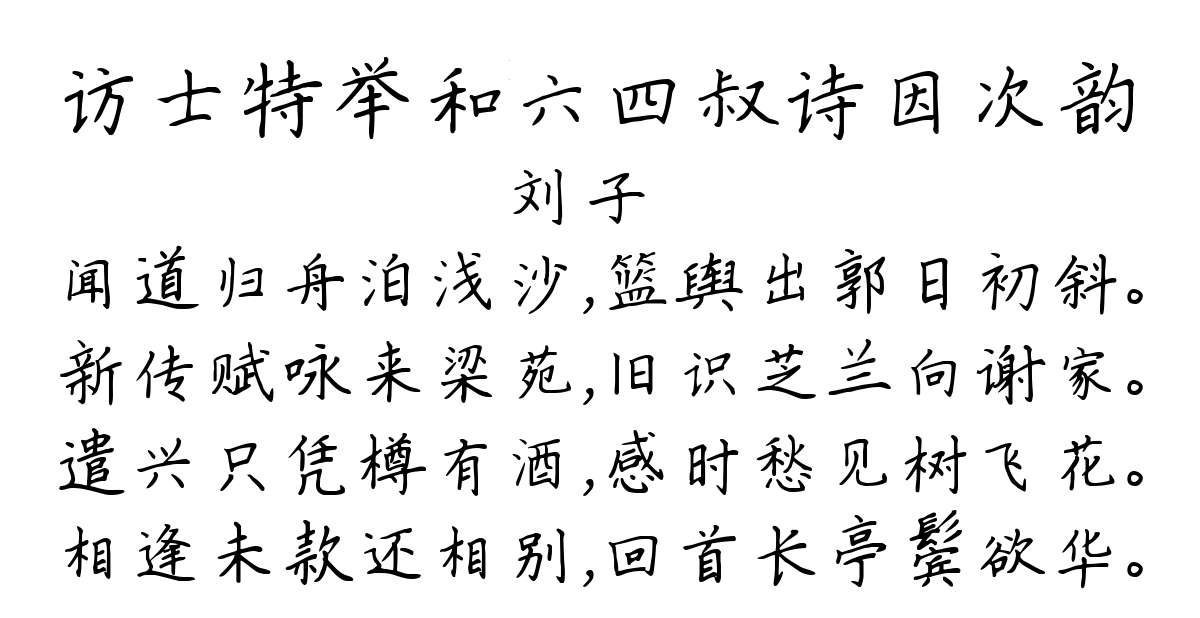 访士特举和六四叔诗因次韵
刘子
闻道归舟泊浅沙,篮舆出郭日初斜。
新传赋咏来梁苑,旧识芝兰向谢家。
遣兴只凭樽有酒,感时愁见树飞花。
相逢未款还相别,回首长亭鬓欲华。